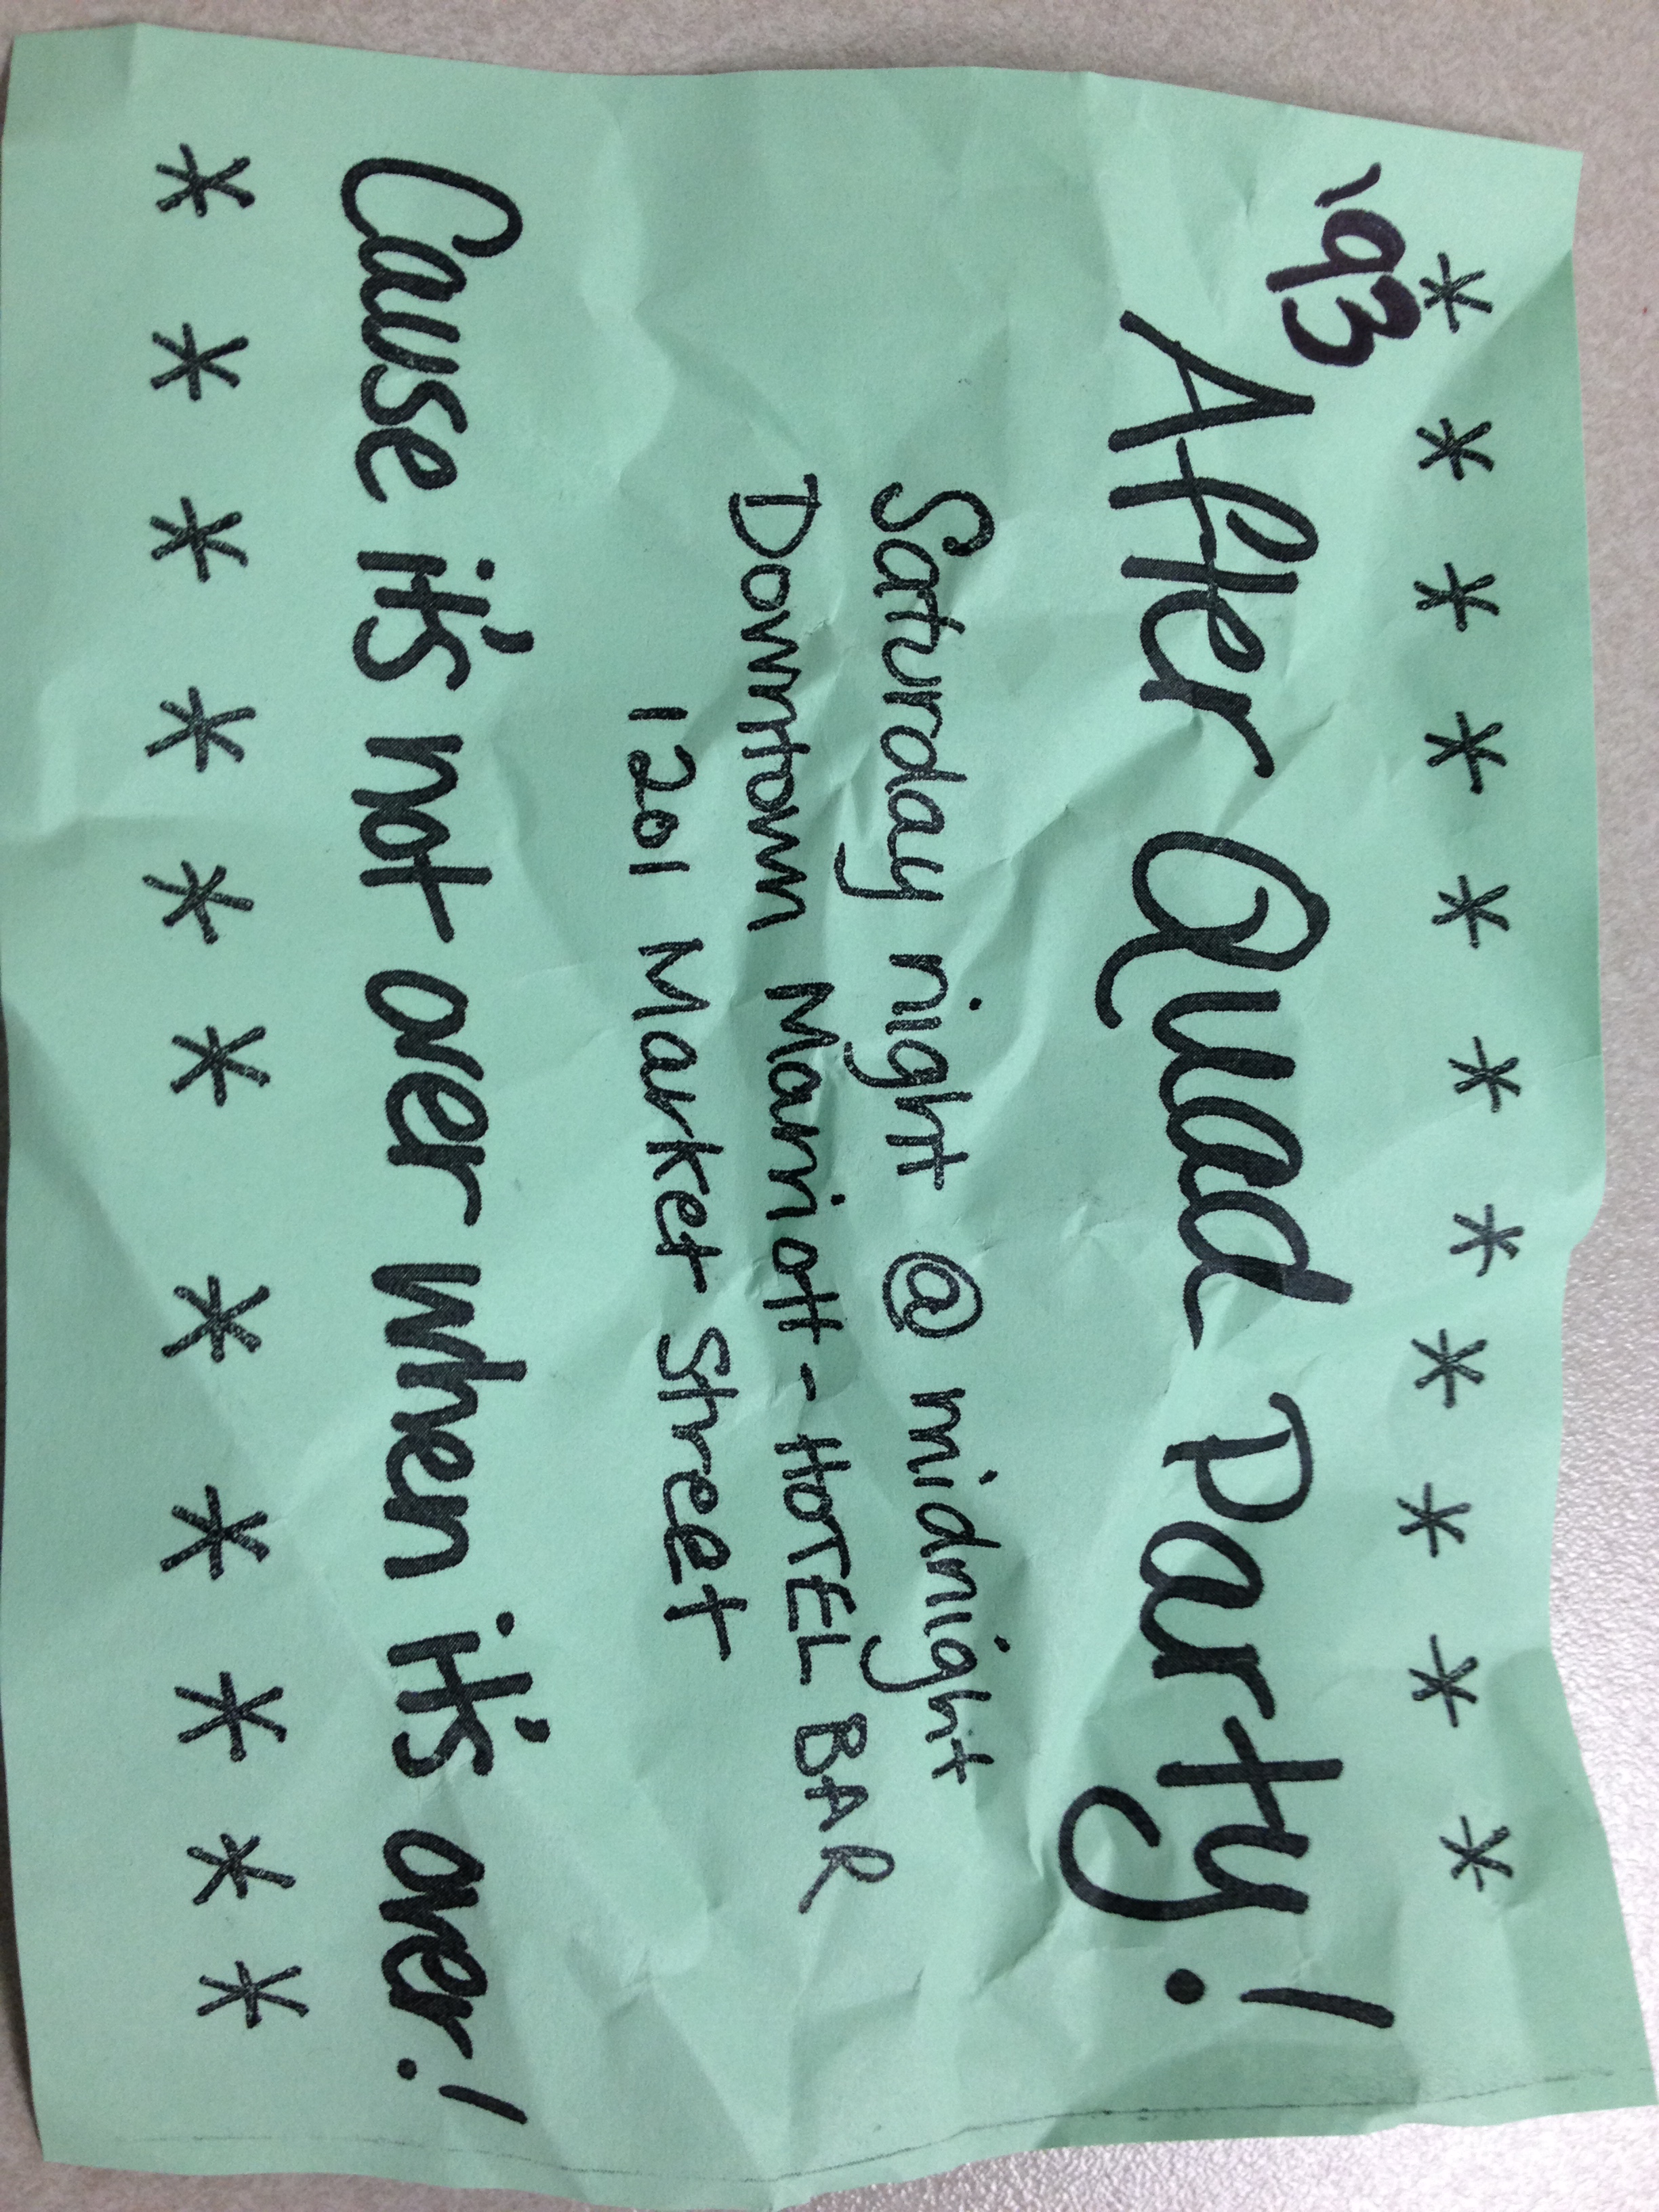 '93
* * * * * * * * * * *
After Quad Party!
Saturday night @ midnight
Downtown Marriott - HOTEL BAR
1201 Market Street
Cause it's not over when it's over!
* * * * * * * * * * *